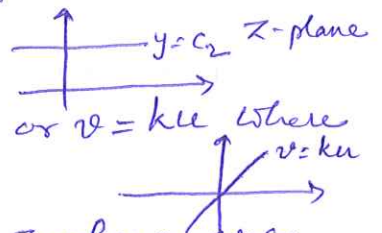 y=c₂ Z-plane
or v = ku where
v=ku